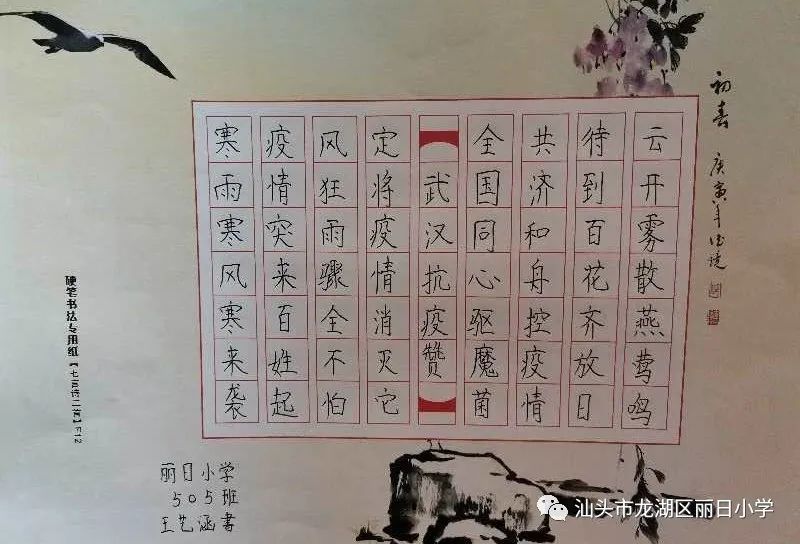 寒雨寒风寒来袭
疫情突来百姓起
风狂雨骤全不怕
定将疫情消灭它
武汉抗疫赞
全国同心驱魔菌
共济和舟控疫情
待到百花齐放日
云开雾散燕莺鸣
初春 庚寅年
硬笔书法专用纸【七言诗二首】
丽日小学
505班
王艺涵書
汕头市龙湖区丽日小学